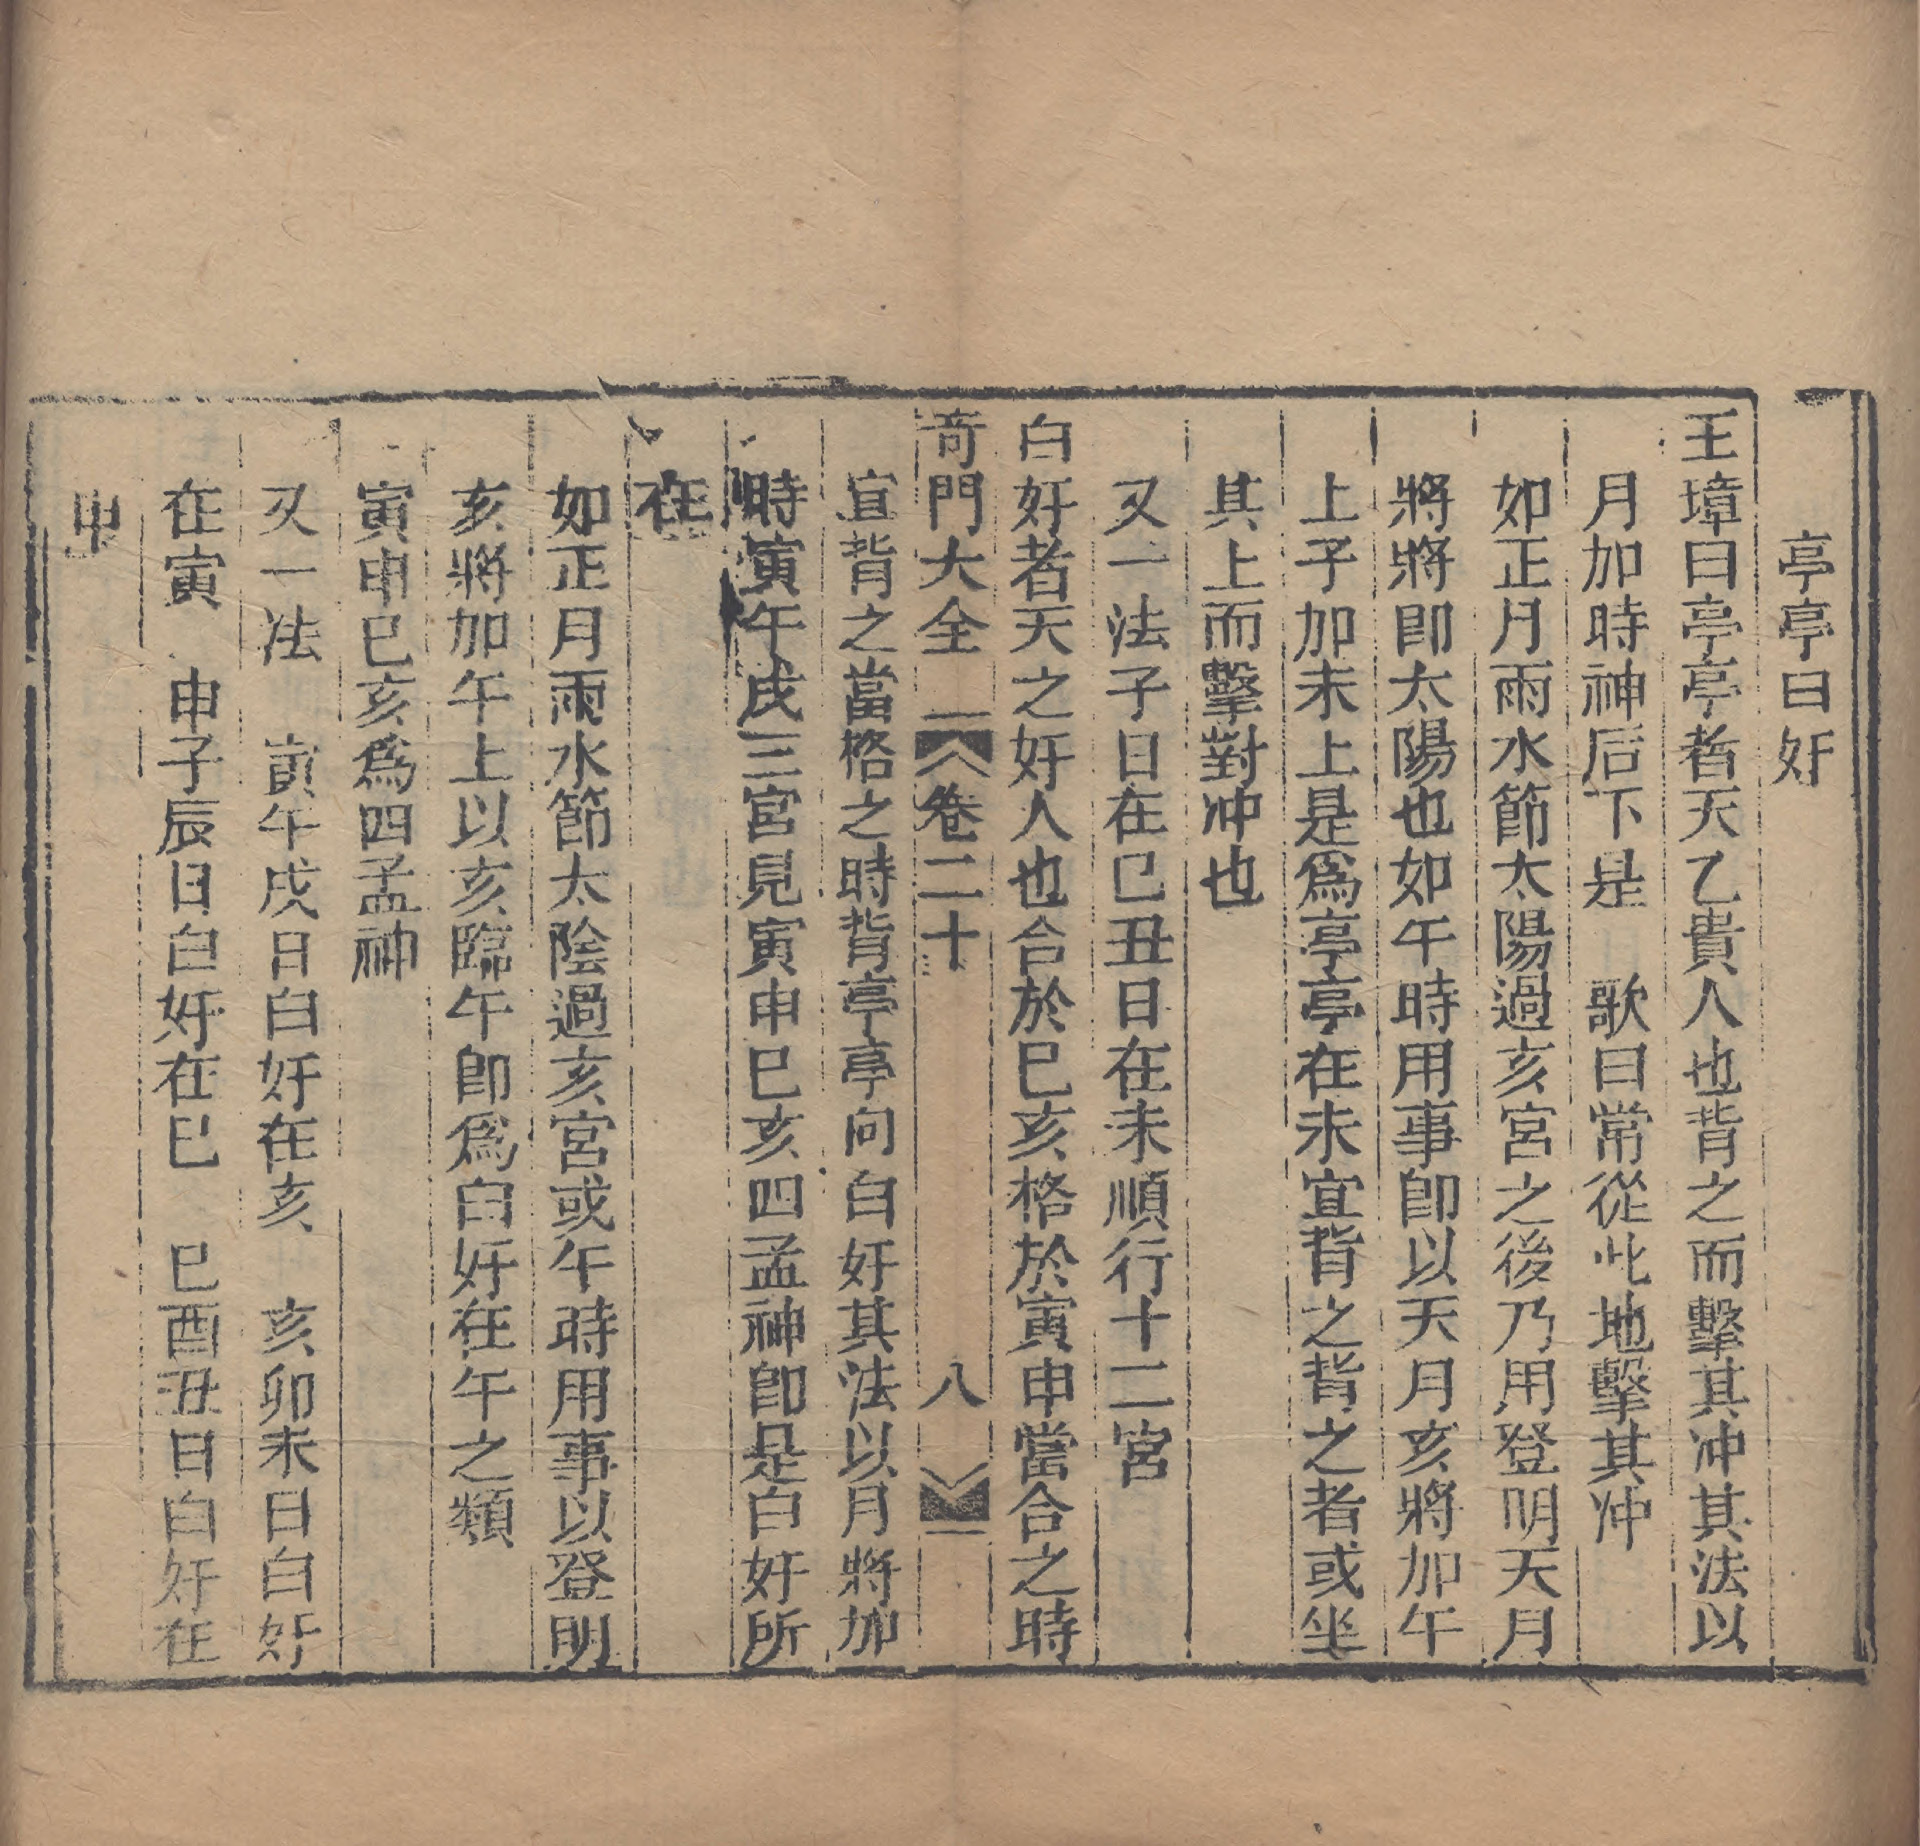 亭亭曰奸
王璋曰亭亭者天乙貴人也背之而擊其冲其法以
月加時神后下是　歌曰常從此地擊其冲
如正月雨水節太陽過亥宮之後乃用登明天月
將將卽太陽也如午時用事卽以天月亥將加午
上子加未上是爲亭亭在未宜背之背之者或坐
其上而擊對冲也
又一法子日在巳丑日在未順行十二宮
白奸者天之奸人也合於巳亥格於寅申當合之時
奇門大全　卷二十　八
宜背之當格之時背亭亭向白奸其法以月將加
時寅午戌三宮見寅申巳亥四孟神卽是白奸所
在
如正月雨水節太陰過亥宮或午時用事以登明
亥將加午上以亥臨午卽爲白奸在午之類
寅申巳亥爲四孟神
又一法　寅午戌日白奸在亥　亥卯未日白奸
在寅　申子辰日白奸在巳　巳酉丑日白奸在
申